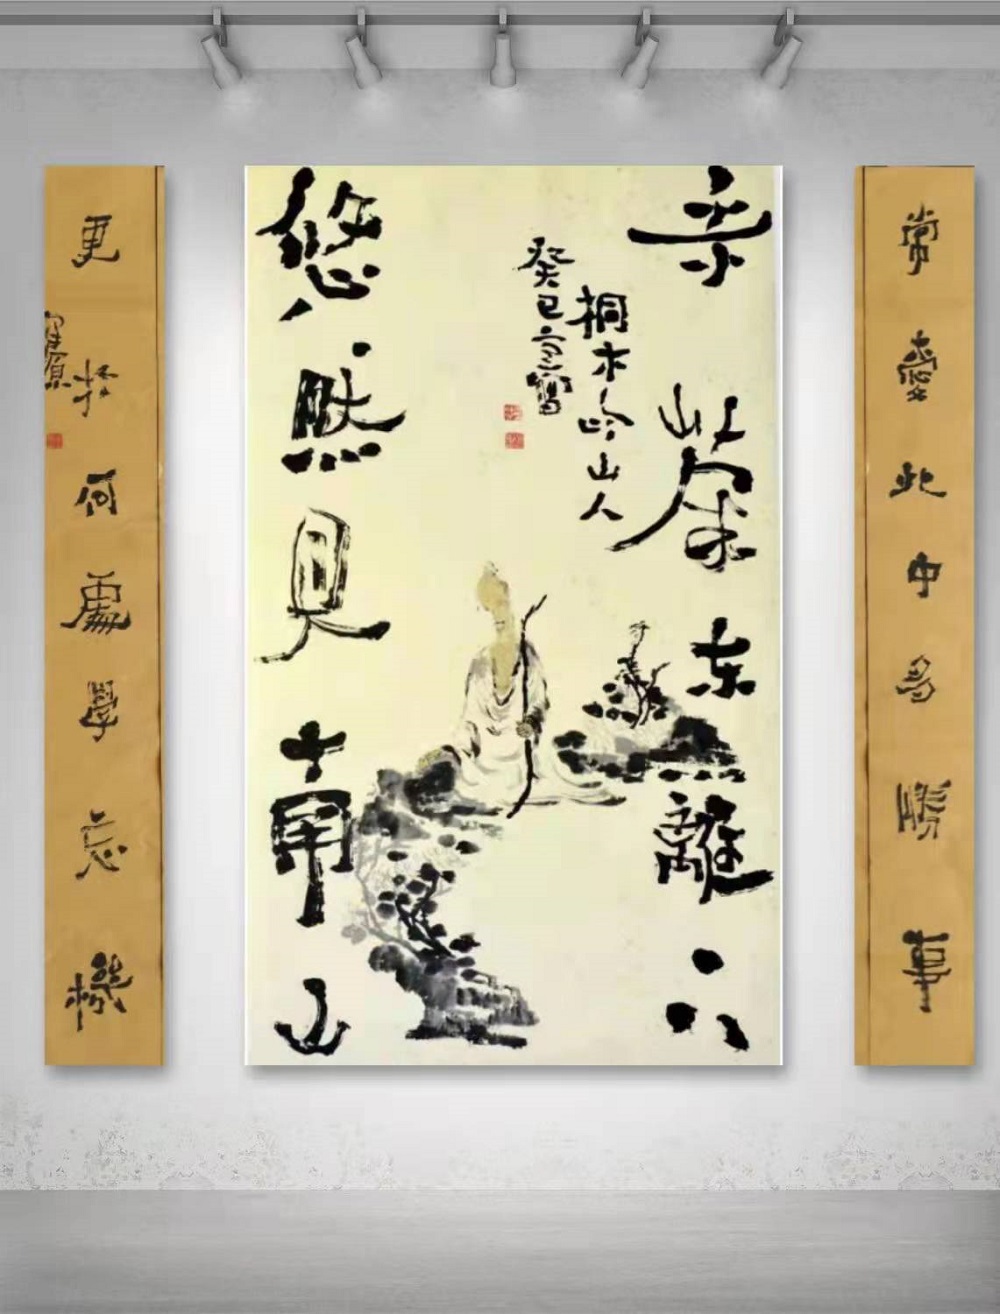 常愛此中多勝事
采菊东籬下
桐木岭山人
癸巳
寫
悠然見南山
更於何處學忘機